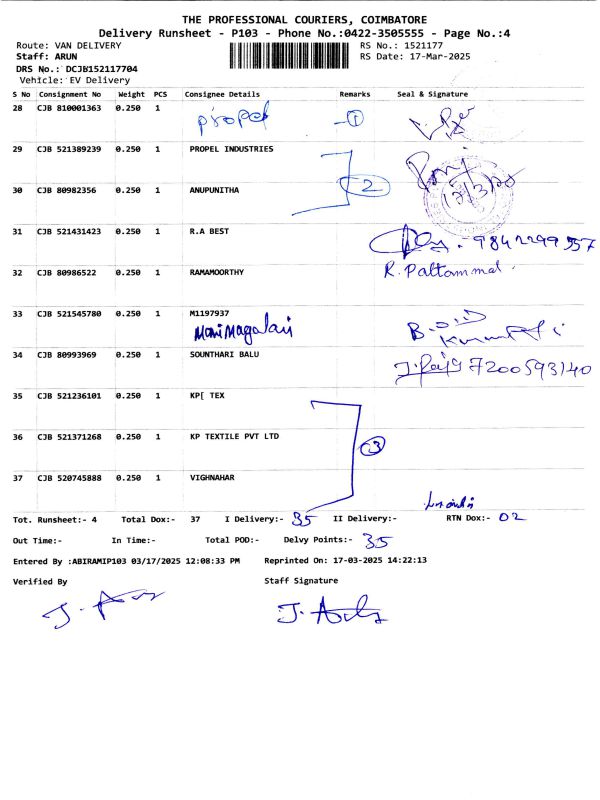 THE PROFESSIONAL COURIERS, COIMBATORE
Delivery Runsheet - P103 - Phone No.:0422-3505555 - Page No.:4
Route: VAN DELIVERY RS No.: 1521177
Staff: ARUN RS Date: 17-Mar-2025
DRS No.: DCJB152117704
Vehicle: EV Delivery
S No Consignment No Weight PCS Consignee Details Remarks Seal & Signature
28 CJB 810001363 0.250 1 propel 1
29 CJB 521389239 0.250 1 PROPEL INDUSTRIES
30 CJB 80982356 0.250 1 ANUPUNITHA 2
31 CJB 521431423 0.250 1 R.A BEST 9842299557
32 CJB 80986522 0.250 1 RAMAMOORTHY R. Pattammal.
33 CJB 521545780 0.250 1 M1197937
34 CJB 80993969 0.250 1 SOUNTHARI BALU 7200593140
35 CJB 521236101 0.250 1 KP[ TEX
36 CJB 521371268 0.250 1 KP TEXTILE PVT LTD 3
37 CJB 520745888 0.250 1 VIGHNAHAR
Tot. Runsheet:- 4 Total Dox:- 37 I Delivery:- 35 II Delivery:- RTN Dox:- 02
Out Time:- In Time:- Total POD:- Delvy Points:- 35
Entered By :ABIRAMIP103 03/17/2025 12:08:33 PM Reprinted On: 17-03-2025 14:22:13
Verified By Staff Signature